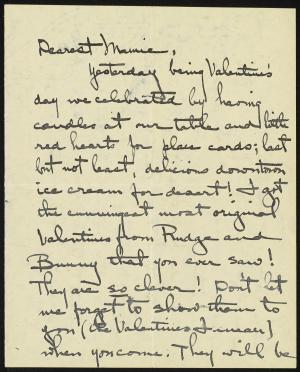 Dearest Mamie,
Yesterday being Valentine's
day we celebrated by having
candles at our table and little
red hearts for place cards; last
but not least, delicious downtown
ice cream for desert! I got
the cunningest most original
Valentines from Rudge and
Bunny that you ever saw!
They are so clever! Don't let
me forget to show them to
you (the Valentines I mean)
when you come. They will be